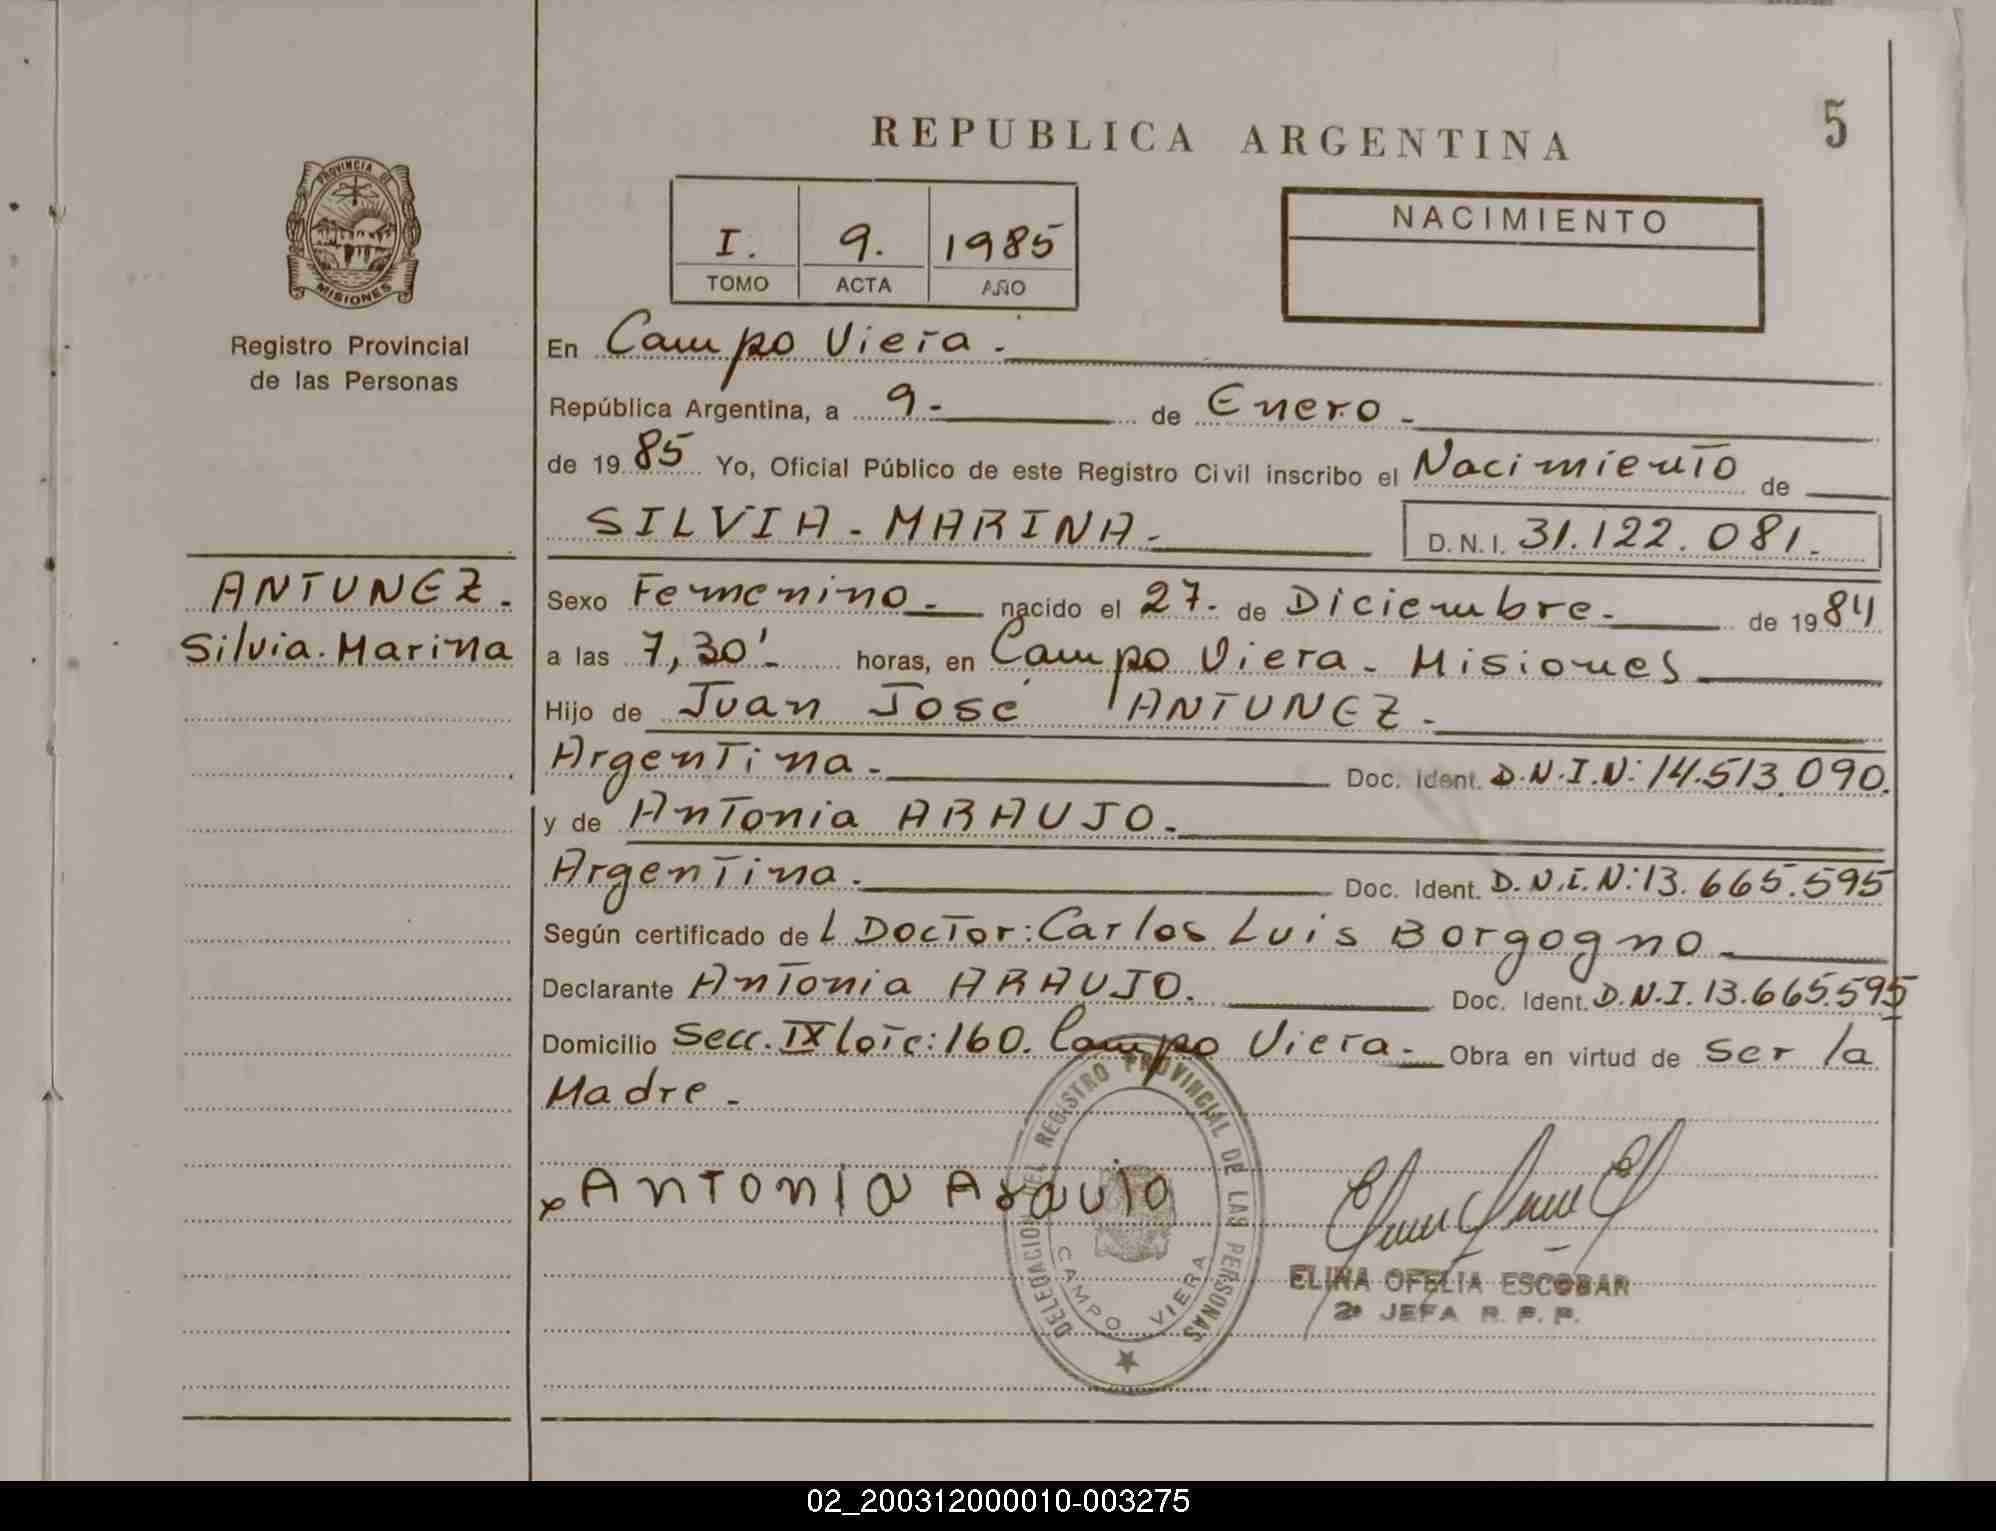 REPUBLICA ARGENTINA
5
PROVINCIA DE
MISIONES
Registro Provincial
de las Personas
I. 9. 1985
TOMO ACTA AÑO
NACIMIENTO
En Campo Viera.
República Argentina, a 9- de Enero-
de 1985 Yo, Oficial Público de este Registro Civil inscribo el Nacimiento de
SILVIA-MARINA- D.N.I. 31.122.081.
ANTUNEZ.
Silvia.Marina
Sexo Femenino- nacido el 27. de Diciembre- de 1984
a las 7,30'- horas, en Campo Viera- Misiones
Hijo de Juan José ANTUNEZ-
Argentina- Doc. Ident. D.N.I.N: 14.513.090.
y de Antonia ARAUJO-
Argentina. Doc. Ident. D.N.I.N: 13.665.595
Según certificado del Doctor: Carlos Luis Borgogno-
Declarante Antonia ARAUJO. Doc. Ident. D.N.I. 13.665.595
Domicilio Secc. IX lote: 160. Campo Viera- Obra en virtud de ser la
Madre-
x Antonia Araujo
DELEGACION DEL REGISTRO PROVINCIAL DE LAS PERSONAS
CAMPO VIERA
ELINA OFELIA ESCOBAR
2ª JEFA R. P. P.
02_200312000010-003275